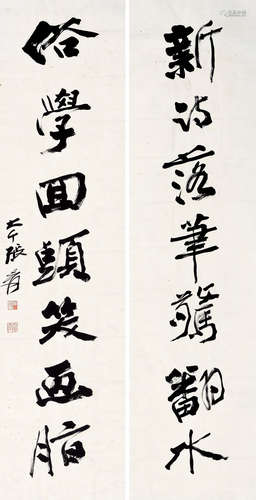 新詩落筆驚翻水
俗學回頭笑畫脂
大千張爰